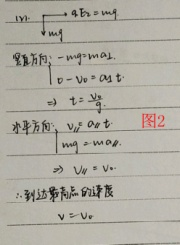 (2). qE₂ = mg.
mg
竖直方向: -mg = ma⊥.
0 - v₀ = a⊥ t.
⇒ t = v₀/g.
水平方向: v∥ = a∥ t.
mg = ma∥.
⇒ v∥ = v₀.
图2
∴到达最高点的速度
v = v₀